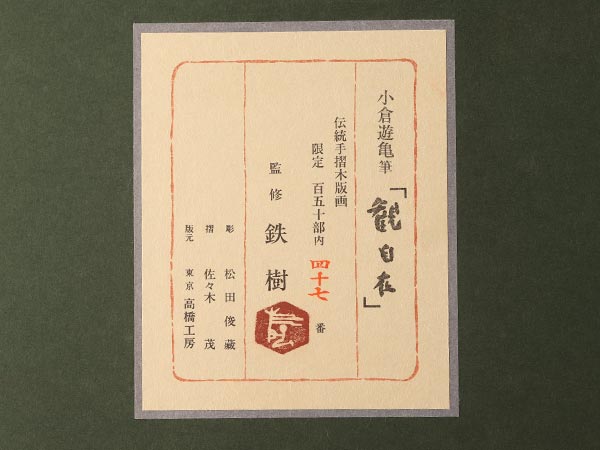 小倉遊亀筆「観自在」
伝統手摺木版画
限定 百五十部内 四十七番
監修 鉄樹
彫 松田俊蔵
摺 佐々木茂
版元 東京 高橋工房